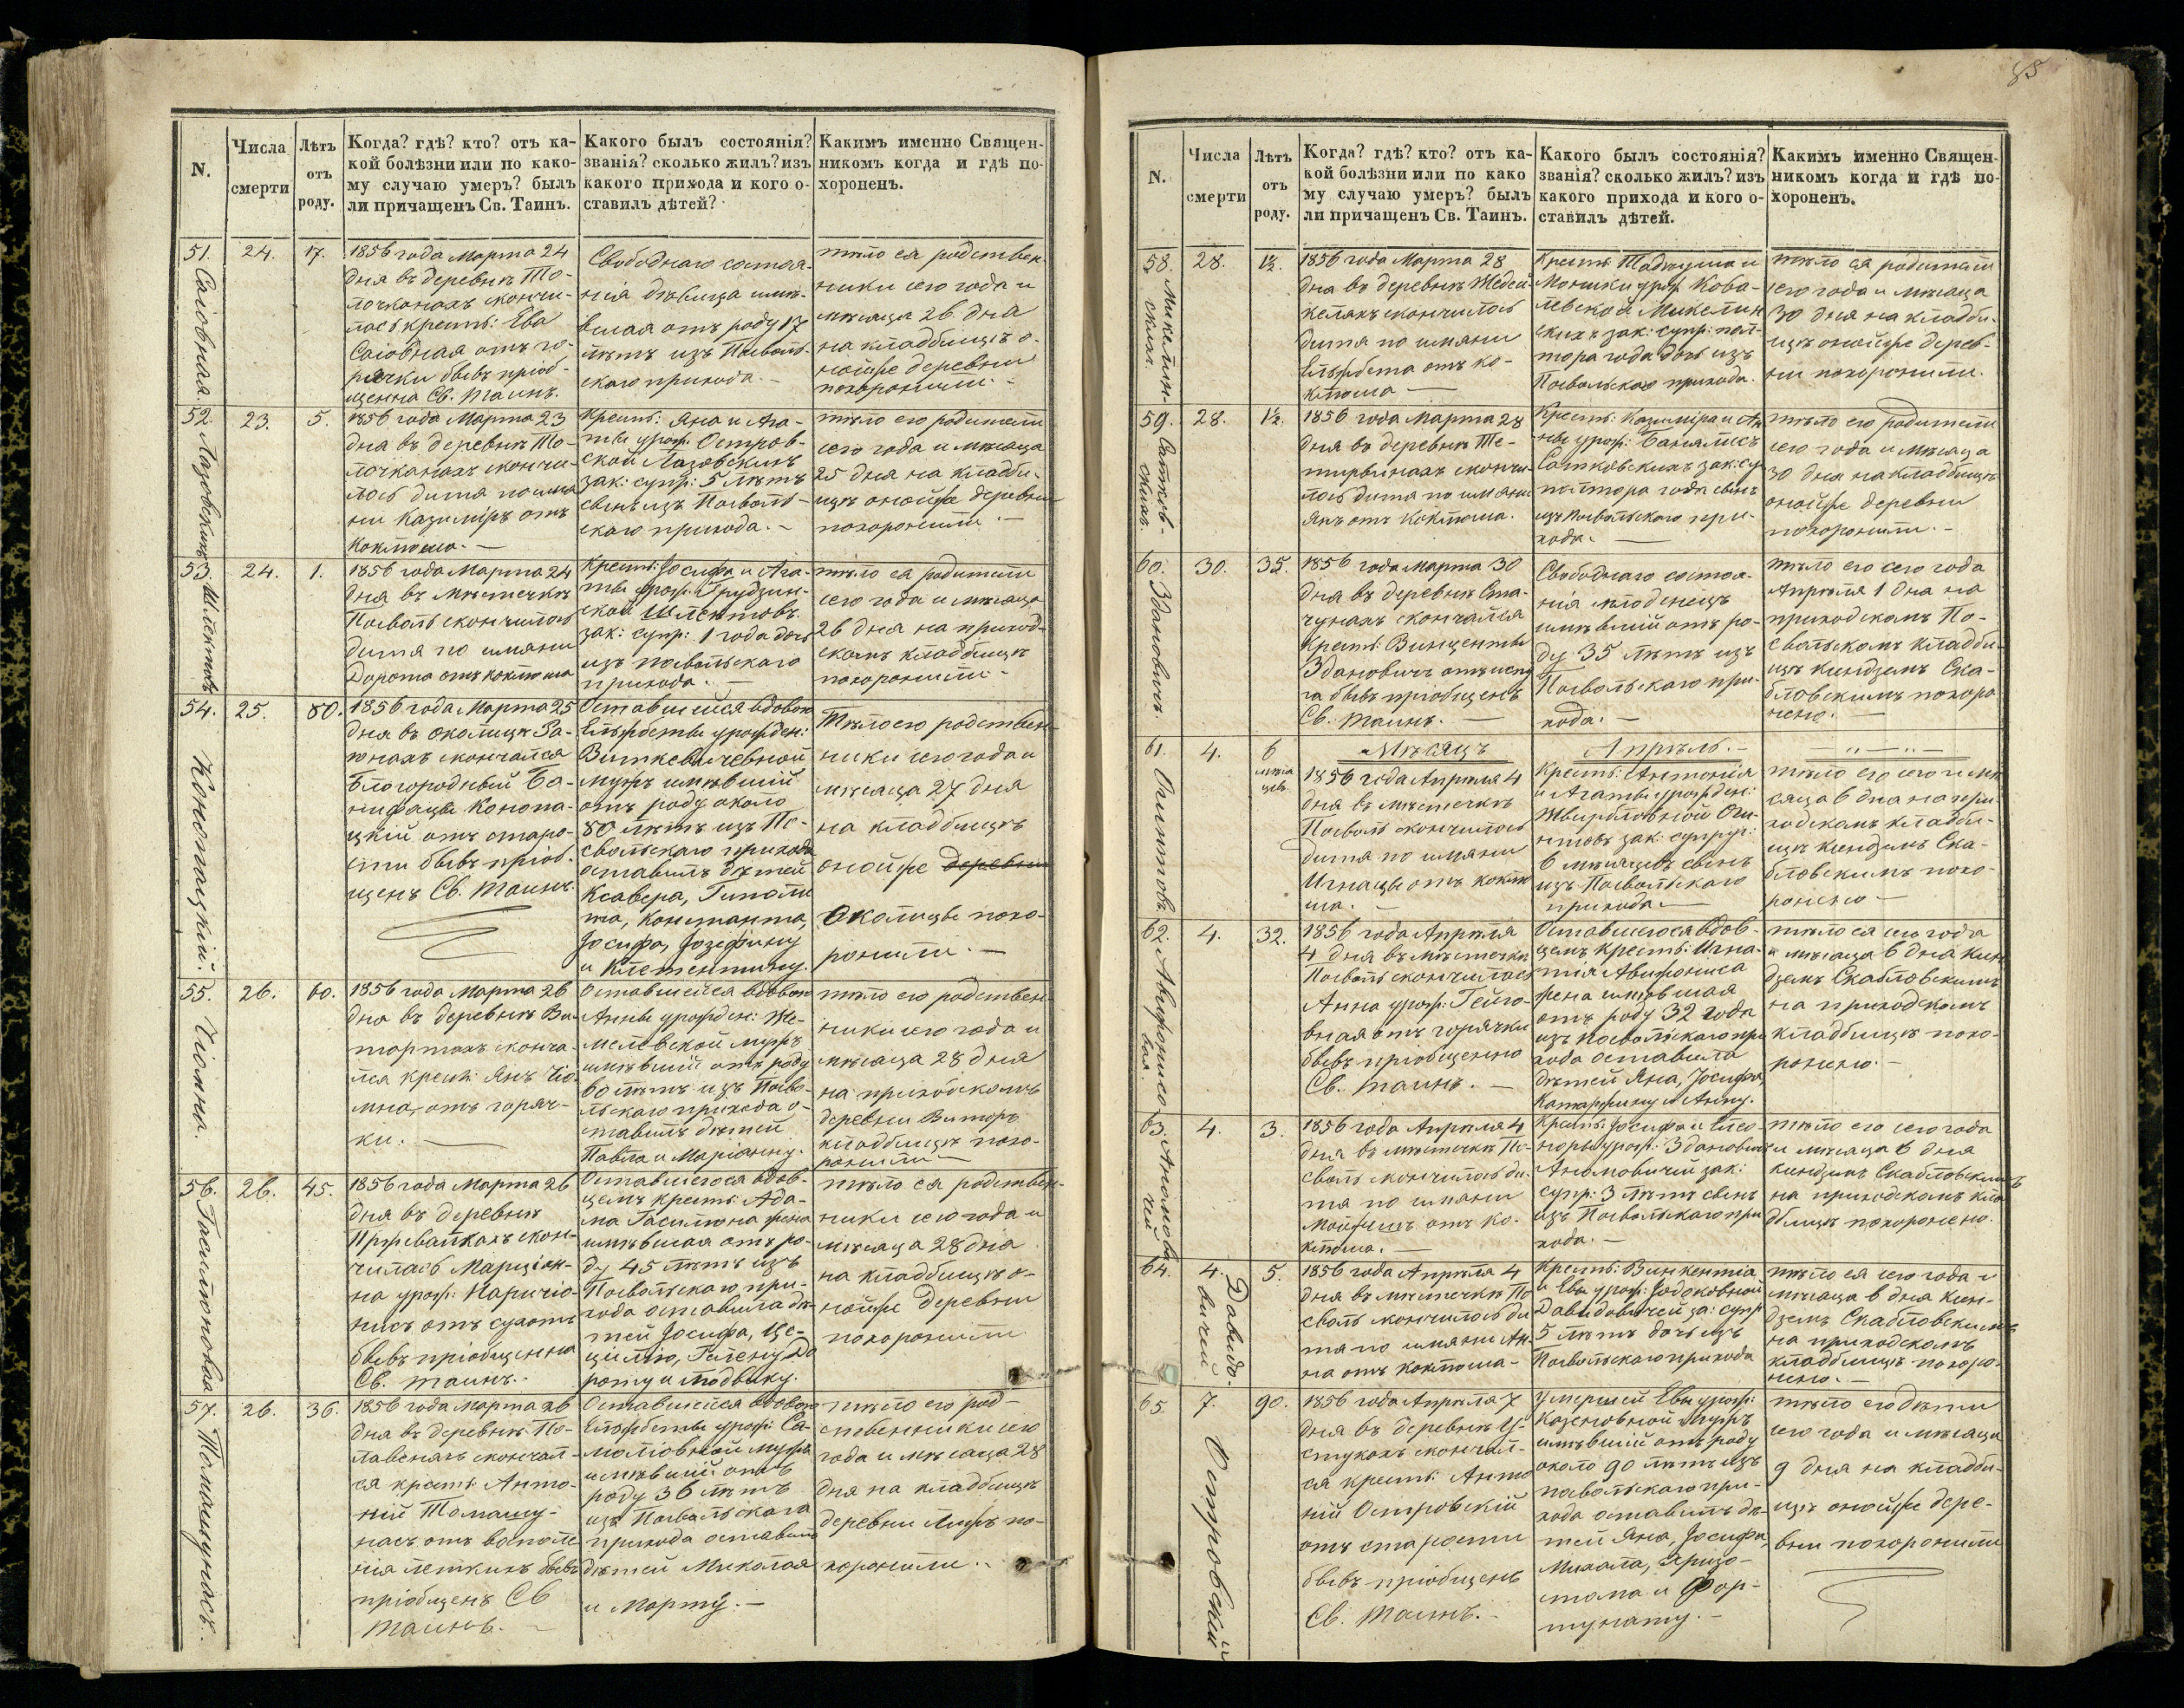 85
N.
Числа
смерти
Лѣтъ
отъ
роду.
Когда? гдѣ? кто? отъ ка-
кой болѣзни или по како-
му случаю умеръ? былъ
ли причащенъ Св. Таинъ.
Какого былъ состоянія?
званія? сколько жилъ? изъ
какого прихода и кого о-
ставилъ дѣтей?
Какимъ именно Священ-
никомъ когда и гдѣ по-
хороненъ.
51.
24.
17.
1856 года Марта 24
дня въ деревнѣ То-
лочканахъ скончи-
лась крестъ: Ева
отъ го-
рячки бывъ пріоб-
щенна Св. Таинъ.
Свободнаго состоя-
нія дѣвица имѣ-
вшая отъ роду 17
лѣтъ изъ Посволь-
скаго прихода. -
тѣло ея родствен-
ники сего года и
мѣсяца 26 дня
на кладбищѣ о-
нойже деревни
похоронили. -
52. Лазовскихъ
23.
5.
1856 года Марта 23
дня въ деревнѣ То-
лочканахъ скончи-
лось дитя по име-
ни Казиміръ отъ
коклюша. —
Крестъ: Яна и Ага-
ты урож: Остров-
ской Лазовскихъ
зак: супр: 5 лѣтъ
сынъ изъ Посволь-
скаго прихода. -
тѣло его родители
сего года и мѣсяца
25 дня на кладби-
щѣ онойже деревни
похоронили. —
53. Шлентовъ
24.
1.
1856 года Марта 24
дня въ мѣстечкѣ
Посволь скончилось
дитя по имяни
Дорота отъ коклюша
Крестъ: Іосифа и Ага-
ты урож: Грудзин-
ской Шлентовъ
зак: супр: 1 года дочь
изъ посвольскаго
прихода. —
тѣло ея родители
сего года и мѣсяца
26 дня на приход-
скомъ кладбищѣ
похоронили -
54. Конопацкій.
25.
80.
1856 года Марта 25
дня въ околицѣ За-
скончался
Благородный Бо-
нифацы Конопа-
цкій отъ старо-
сти бывъ пріоб-
щенъ Св. Таинъ.
Оставшейся вдовою
Ельжбеты урожден:
Виткевичевной
мужъ имѣвшій
отъ роду около
80 лѣтъ изъ По-
свольскаго прихода
оставилъ дѣтей
Ксавера, Гиполи-
та, Константа,
Іосифа, Іозефину
и Клементину.
Тѣло его родствен-
ники сего года и
мѣсяца 27 дня
на кладбищѣ
онойже деревни
Околицы похо-
ронили. —
55. Чіомна.
26.
60.
1856 года Марта 26
дня въ деревнѣ Ви-
торжахъ сконча-
лся крест: Янъ Чіо-
мна, отъ горяч-
ки. —
Оставшейся вдовою
Анны урожден:
мужъ
имѣвшій отъ роду
60 лѣтъ изъ Посво-
льскаго прихода о-
ставилъ дѣтей
Павла и Маріанну.
тѣло его родствен-
ники сего года и
мѣсяца 28 дня
на приходскомъ
деревни
кладбищѣ похо-
ронили —
56. Гасилюновая
26.
45.
1856 года Марта 26
дня въ деревнѣ
скон-
чилась Марціян-
на урож: Наричіо-
нисъ отъ сухоты
бывъ пріобщенна
Св. Таинъ.-
Оставшегося вдов-
цемъ крестъ: Ада-
ма Гасилюна жена
имѣвшая отъ ро-
ду 45 лѣтъ изъ
Посвольскаго при-
хода оставила дѣ-
тей Іосифа, Це-
цилію, Гелену До-
роту и Людвику.
тѣло ея родствен-
ники сего года и
мѣсяца 28 дня
на кладбищѣ о-
нойже деревни
похоронили
57. Томашунасъ.
26.
36.
1856 года Марта 26
дня въ деревнѣ По-
лавенахъ скончал-
ся крестъ: Анто-
ній Томашу-
насъ отъ воспале-
нія легкихъ бывъ
пріобщенъ Св.
Таинъ. -
Оставшейся вдовою
Ельжбеты урож: Са-
мужъ
имѣвшій отъ
роду 36 лѣтъ
изъ Посвольскаго
прихода оставилъ
дѣтей Миколая
и Марту. —
тѣло его род-
ственники сего
года и мѣсяца 28
дня на кладбищѣ
деревни по-
хоронили. -
N.
Числа
смерти
Лѣтъ
отъ
роду.
Когда? гдѣ? кто? отъ ка-
кой болѣзни или по како
му случаю умеръ? былъ
ли причащенъ Св. Таинъ.
Какого былъ состоянія?
званія? сколько жилъ? изъ
какого прихода и кого о-
ставилъ дѣтей.
Какимъ именно Священ-
никомъ когда и гдѣ по-
хороненъ.
58. Микелин-
скихъ.
28.
1½.
1856 года Марта 28
дня въ деревнѣ Жедей-
келяхъ скончилось
дитя по имяни
Ельжбета отъ ко-
клюша —
Крестъ: Тадеуша и
Моники урож: Кова-
левской Микелин-
скихъ зак: супр: пол-
тора года дочь изъ
Посвольскаго прихода.
тѣло ея родители
сего года и мѣсяца
30 дня на кладби-
щѣ онойже дерев-
ни похоронили.
59. Сатков-
скихъ.
28.
1½.
1856 года Марта 28
дня въ деревнѣ Те-
тирвинахъ скончи-
лось дитя по имяни
Янъ отъ коклюша.
Крестъ: Казиміра и Ан-
ны урож: Банялисъ
Сатковскихъ зак: су:
полтора года сынъ
изъ Посвольскаго при-
хода. —
тѣло его родители
сего года и мѣсяца
30 дня на кладбищѣ
онойже деревни
похоронили. -
60. Здановичъ.
30.
35.
1856 года Марта 30
дня въ деревнѣ Ста-
чунахъ скончался
крестъ: Винценты
Здановичъ отъ испу-
га бывъ пріобщенъ
Св. Таинъ. —
Свободнаго состоя-
нія младенецъ
имѣвшій отъ ро-
ду 35 лѣтъ изъ
Посвольскаго при-
хода. —
тѣло его сего года
Апрѣля 1 дня на
приходскомъ По-
свольскомъ кладби-
щѣ ксендземъ Ска-
бловскимъ похоро-
нено. —
Мѣсяцъ
Апрѣль. -
— „ — „ —
61. Огинтовъ
4.
6
мѣся
цев.
1856 года Апрѣля 4
дня въ мѣстечкѣ
Посволь скончилось
дитя по имяни
Игнацы отъ коклю-
ша. —
Крестъ: Антонія
и Агаты урожден:
Жвирбловной Оги-
нтовъ зак: супруг:
6 мѣсяцевъ сынъ
изъ Посвольскаго
прихода —
тѣло его сего г: и мѣ-
сяца 6 дня на при-
ходскомъ кладби-
щѣ ксендземъ Ска-
бловскимъ похо-
ронено —
62. Авижонисо-
вая.
4.
32.
1856 года Апрѣля
4 дня въ мѣстечкѣ
Посволь скончилась
Анна урож: Гейго-
вная отъ горячки
бывъ пріобщенно
Св. Таинъ. —
Оставшегося вдов-
цемъ крестъ: Игна-
тія Авижониса
жена имѣвшая
отъ роду 32 года
изъ посвольскаго при-
хода оставила
дѣтей Яна, Іосифа,
Катаржину и Анну.
тѣло ея сего года
и мѣсяца 6 дня ксен-
дземъ Скабловскимъ
на приходскомъ
кладбищѣ похо-
ронено. —
63.
4.
3.
1856 года Апрѣля 4
дня въ мѣстечкѣ По-
своль скончилось ди-
тя по имяни
отъ ко-
клюша. —
Крестъ: Іосифа и Елео-
норы урож: Здановичъ
зак:
супр: 3 лѣтъ сынъ
изъ Посвольскаго при
хода. —
тѣло его сего года
и мѣсяца 6 дня
ксендземъ Скабловскимъ
на приходскомъ кла-
дбищѣ похоронено.
64. Давидо-
вичей
4.
5.
1856 года Апрѣля 4
дня въ мѣстечкѣ По
своль скончилось ди
тя по имяни Ан-
на отъ коклюша -
Крестъ: Винкентія
и Евы урож:
Давидовичей за: супр
5 лѣтъ дочь изъ
Посвольскаго прихода
тѣло ея сего года и
мѣсяца 6 дня ксен-
дземъ Скабловскимъ
на приходскомъ
кладбищѣ похоро-
нено. —
65. Островскій
7.
90.
1856 года Апрѣля 7
дня въ деревнѣ У-
стукахъ скончал-
ся крестъ: Анто
ній Островскій
отъ старости
бывъ пріобщенъ
Св. Таинъ. -
Умершей Евы урож:
мужъ
имѣвшій отъ роду
около 90 лѣтъ изъ
посвольскаго при-
хода оставилъ дѣ-
тей Яна, Іосифа,
Михала, Кризо-
стома и Фор-
тунату. —
тѣло его дѣти
сего года и мѣсяца
9 дня на кладби-
щѣ онойже дере-
вни похоронили